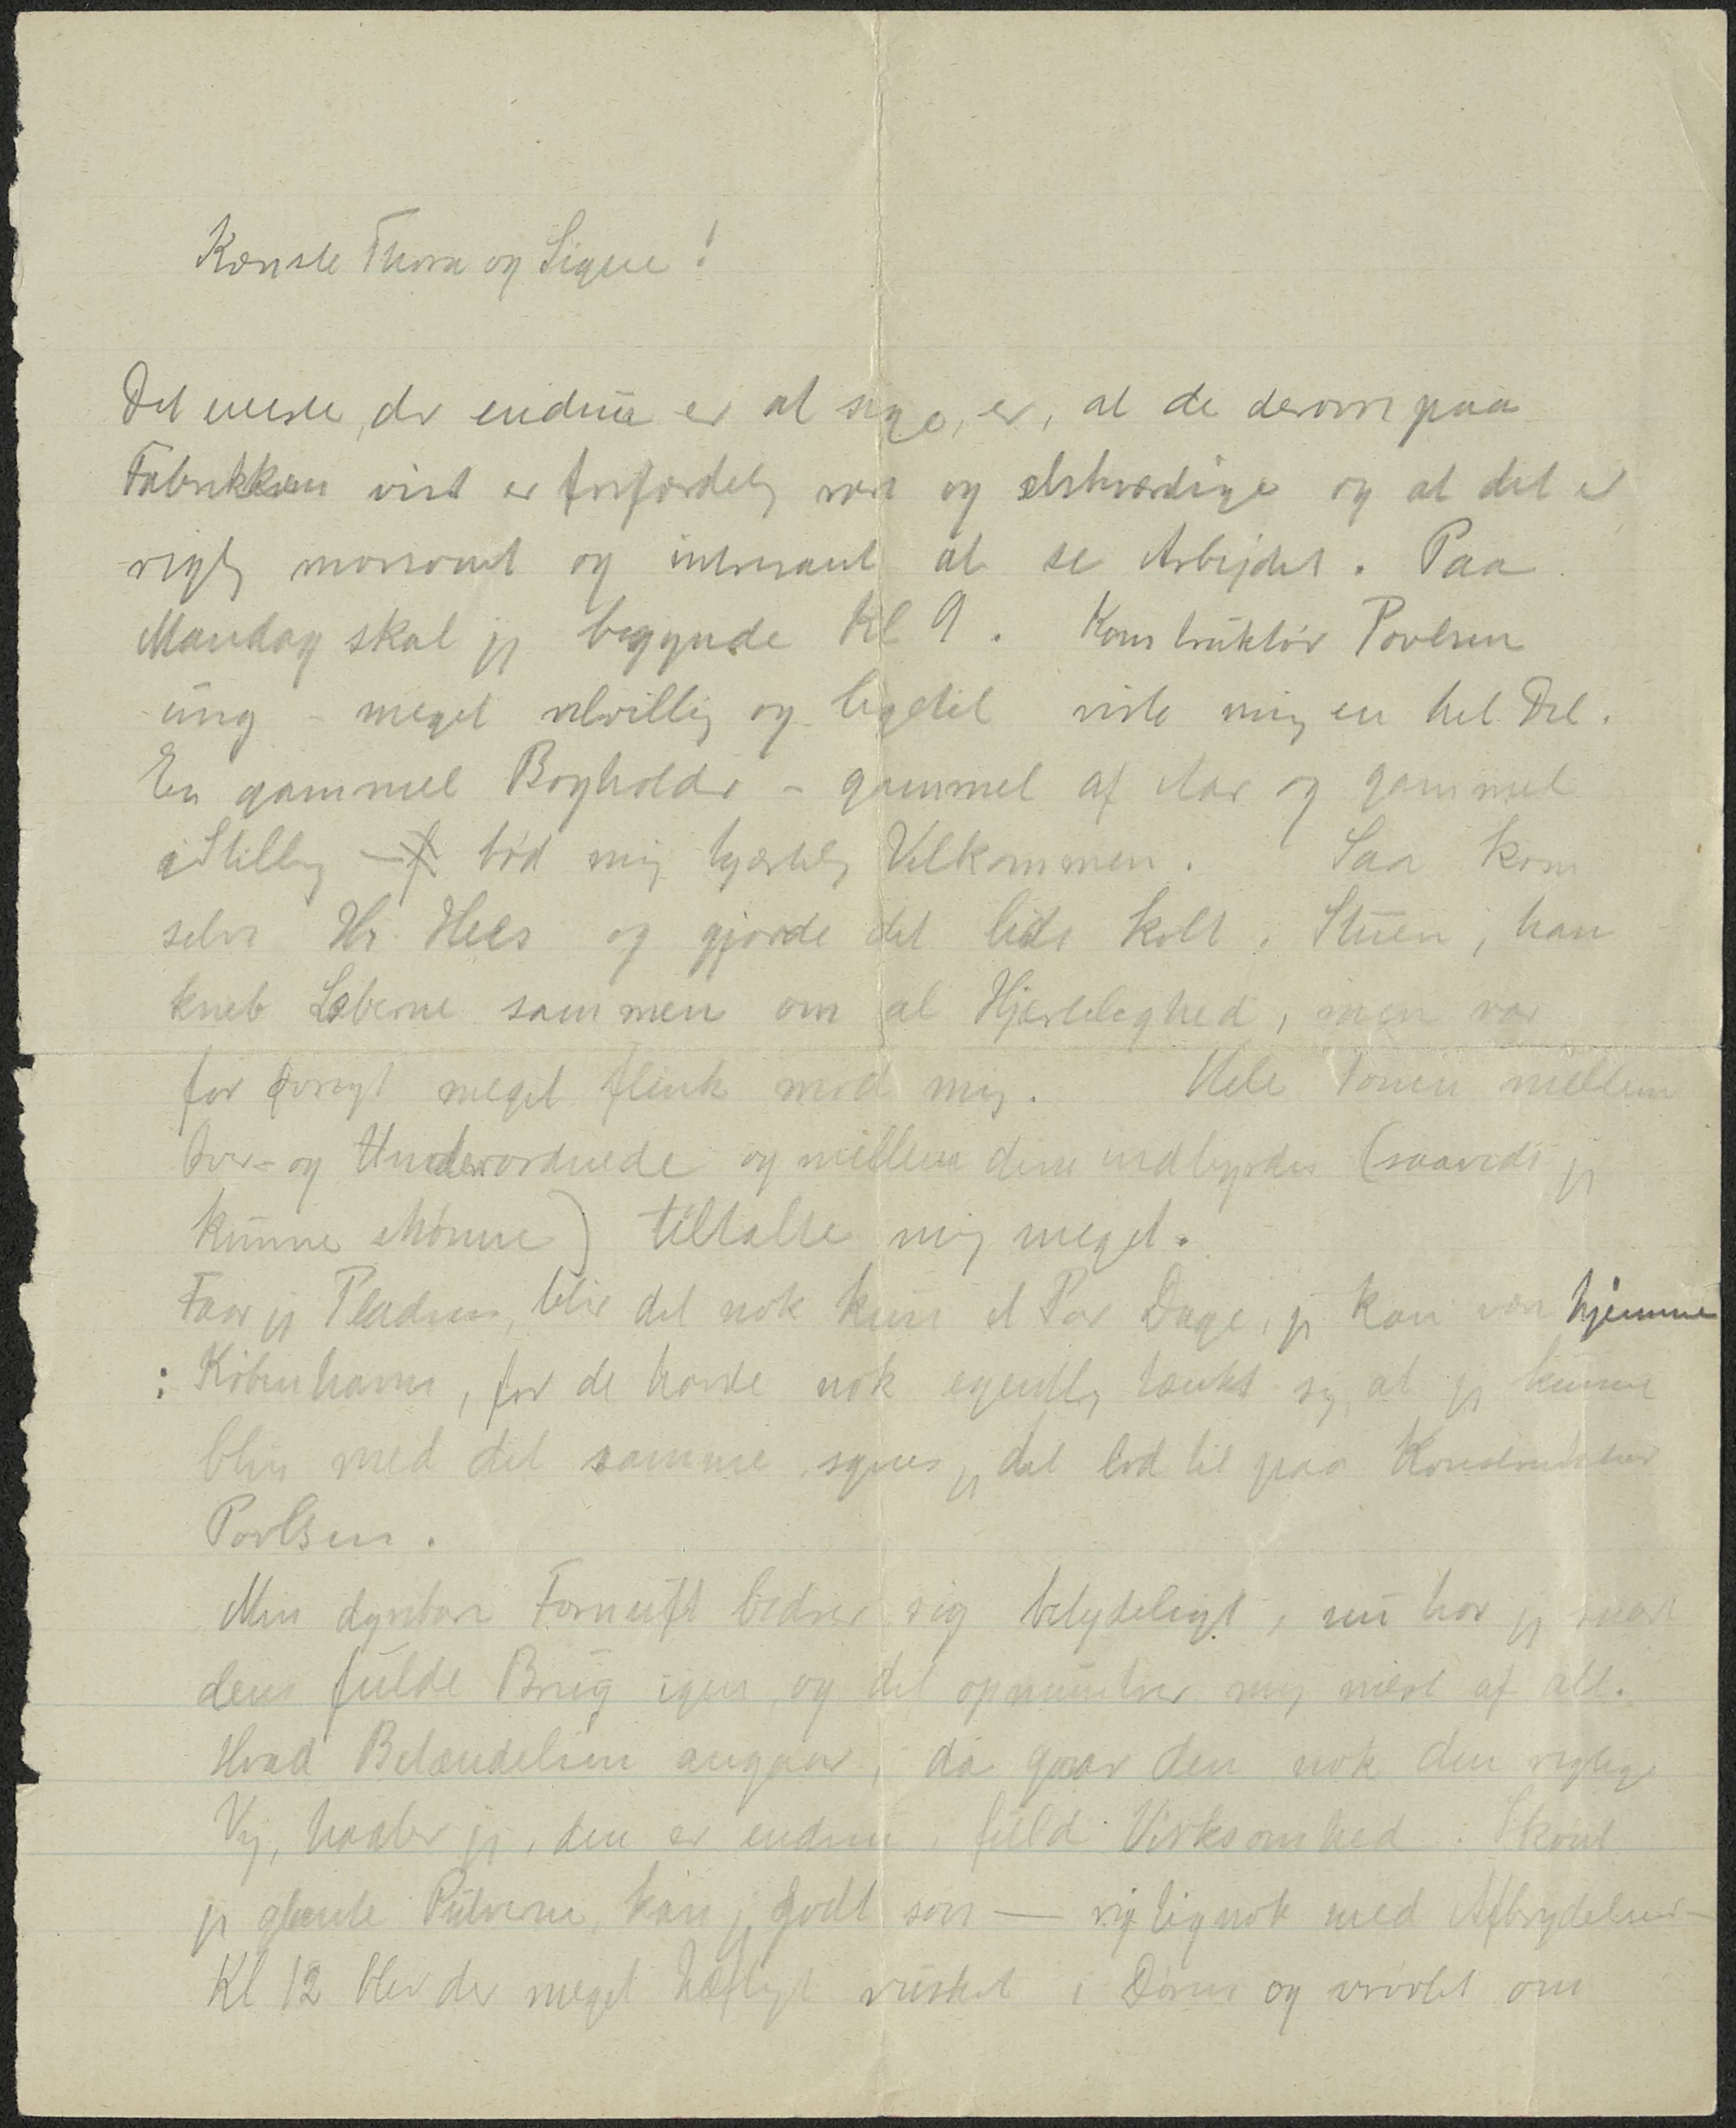 Kæreste Thora og Signe!
Det eneste, der endnu er at sige, er, at de derom paa
Fabrikken vist er forfærdelig rare og elskværdige og at det er
rigtig morsomt og interessant at se Arbejdet. Paa
Mandag skal jeg begynde Kl 9. Konstruktør Povlsen
ung - meget velvillig og ligetil viste mig en hel Del.
En gammel Bogholder - gammel af Aar og gammel
i Stilling - bød mig hjertelig Velkommen. Saa kom
selve Hr. Hees og gjorde det lidt koldt i Stuen, han
kneb Læberne sammen om al Hjertelighed, men var
for øvrigt meget flink mod mig. Hele Tonen mellem
Over- og Underordnede og mellem dem indbyrdes (saavidt jeg
kunne skønne) tiltalte mig meget.
Faar jeg Pladsen, blir det nok kun et Par Dage, jeg kan være hjemme
i København, for de havde nok egentlig tænkt sig, at jeg kunne
bliv med det samme, synes jeg det lod til paa Konstruktør
Povlsen.
Min dyrebare Fornuft bedrer sig betydeligt, nu har jeg snart
dens fulde Brug igen, og det opmuntrer mig mest af alt.
Hvad Betændelsen angaar, da gaar den nok den rigtige
Vej, haaber jeg, den er endnu i fuld Virksomhed. Skønt
jeg glemte Pulverne, kan jeg godt sov — rigtignok med Afbrydelser —
Kl 12 blev der meget hæftigt rusket i Døren og vrøvlet om